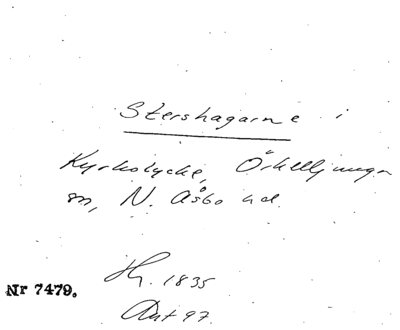 Stershagarne i
Kyrkolycke, Örkelljunga
sn, N. Åsbo hd
Hg. 1835
Ant 97
Nr 7479.